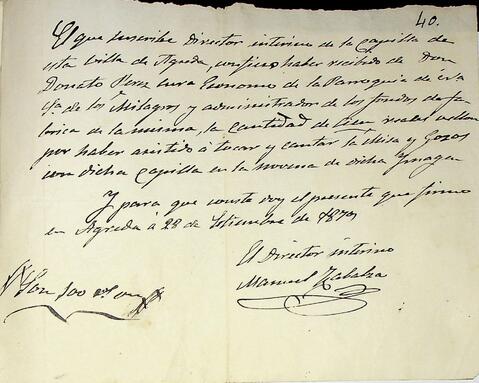 40.
El que suscribe Director interino de la capilla de
esta villa de Agreda, certifico haber recibido de Don
Donato Perez cura Economo de la Parroquia de
de los Milagros y administrador de los fondos de fa-
brica de la misma, la cantidad de cien reales vellon
por haber asistido á tocar y cantar la Misa y Gozos
con dicha capilla en la novena de dicha Ymagen
Y para que conste doy el presente que firmo
en Agreda á 28 de Setiembre de
El Director interino
Manuel
Son 100 rs. vn.